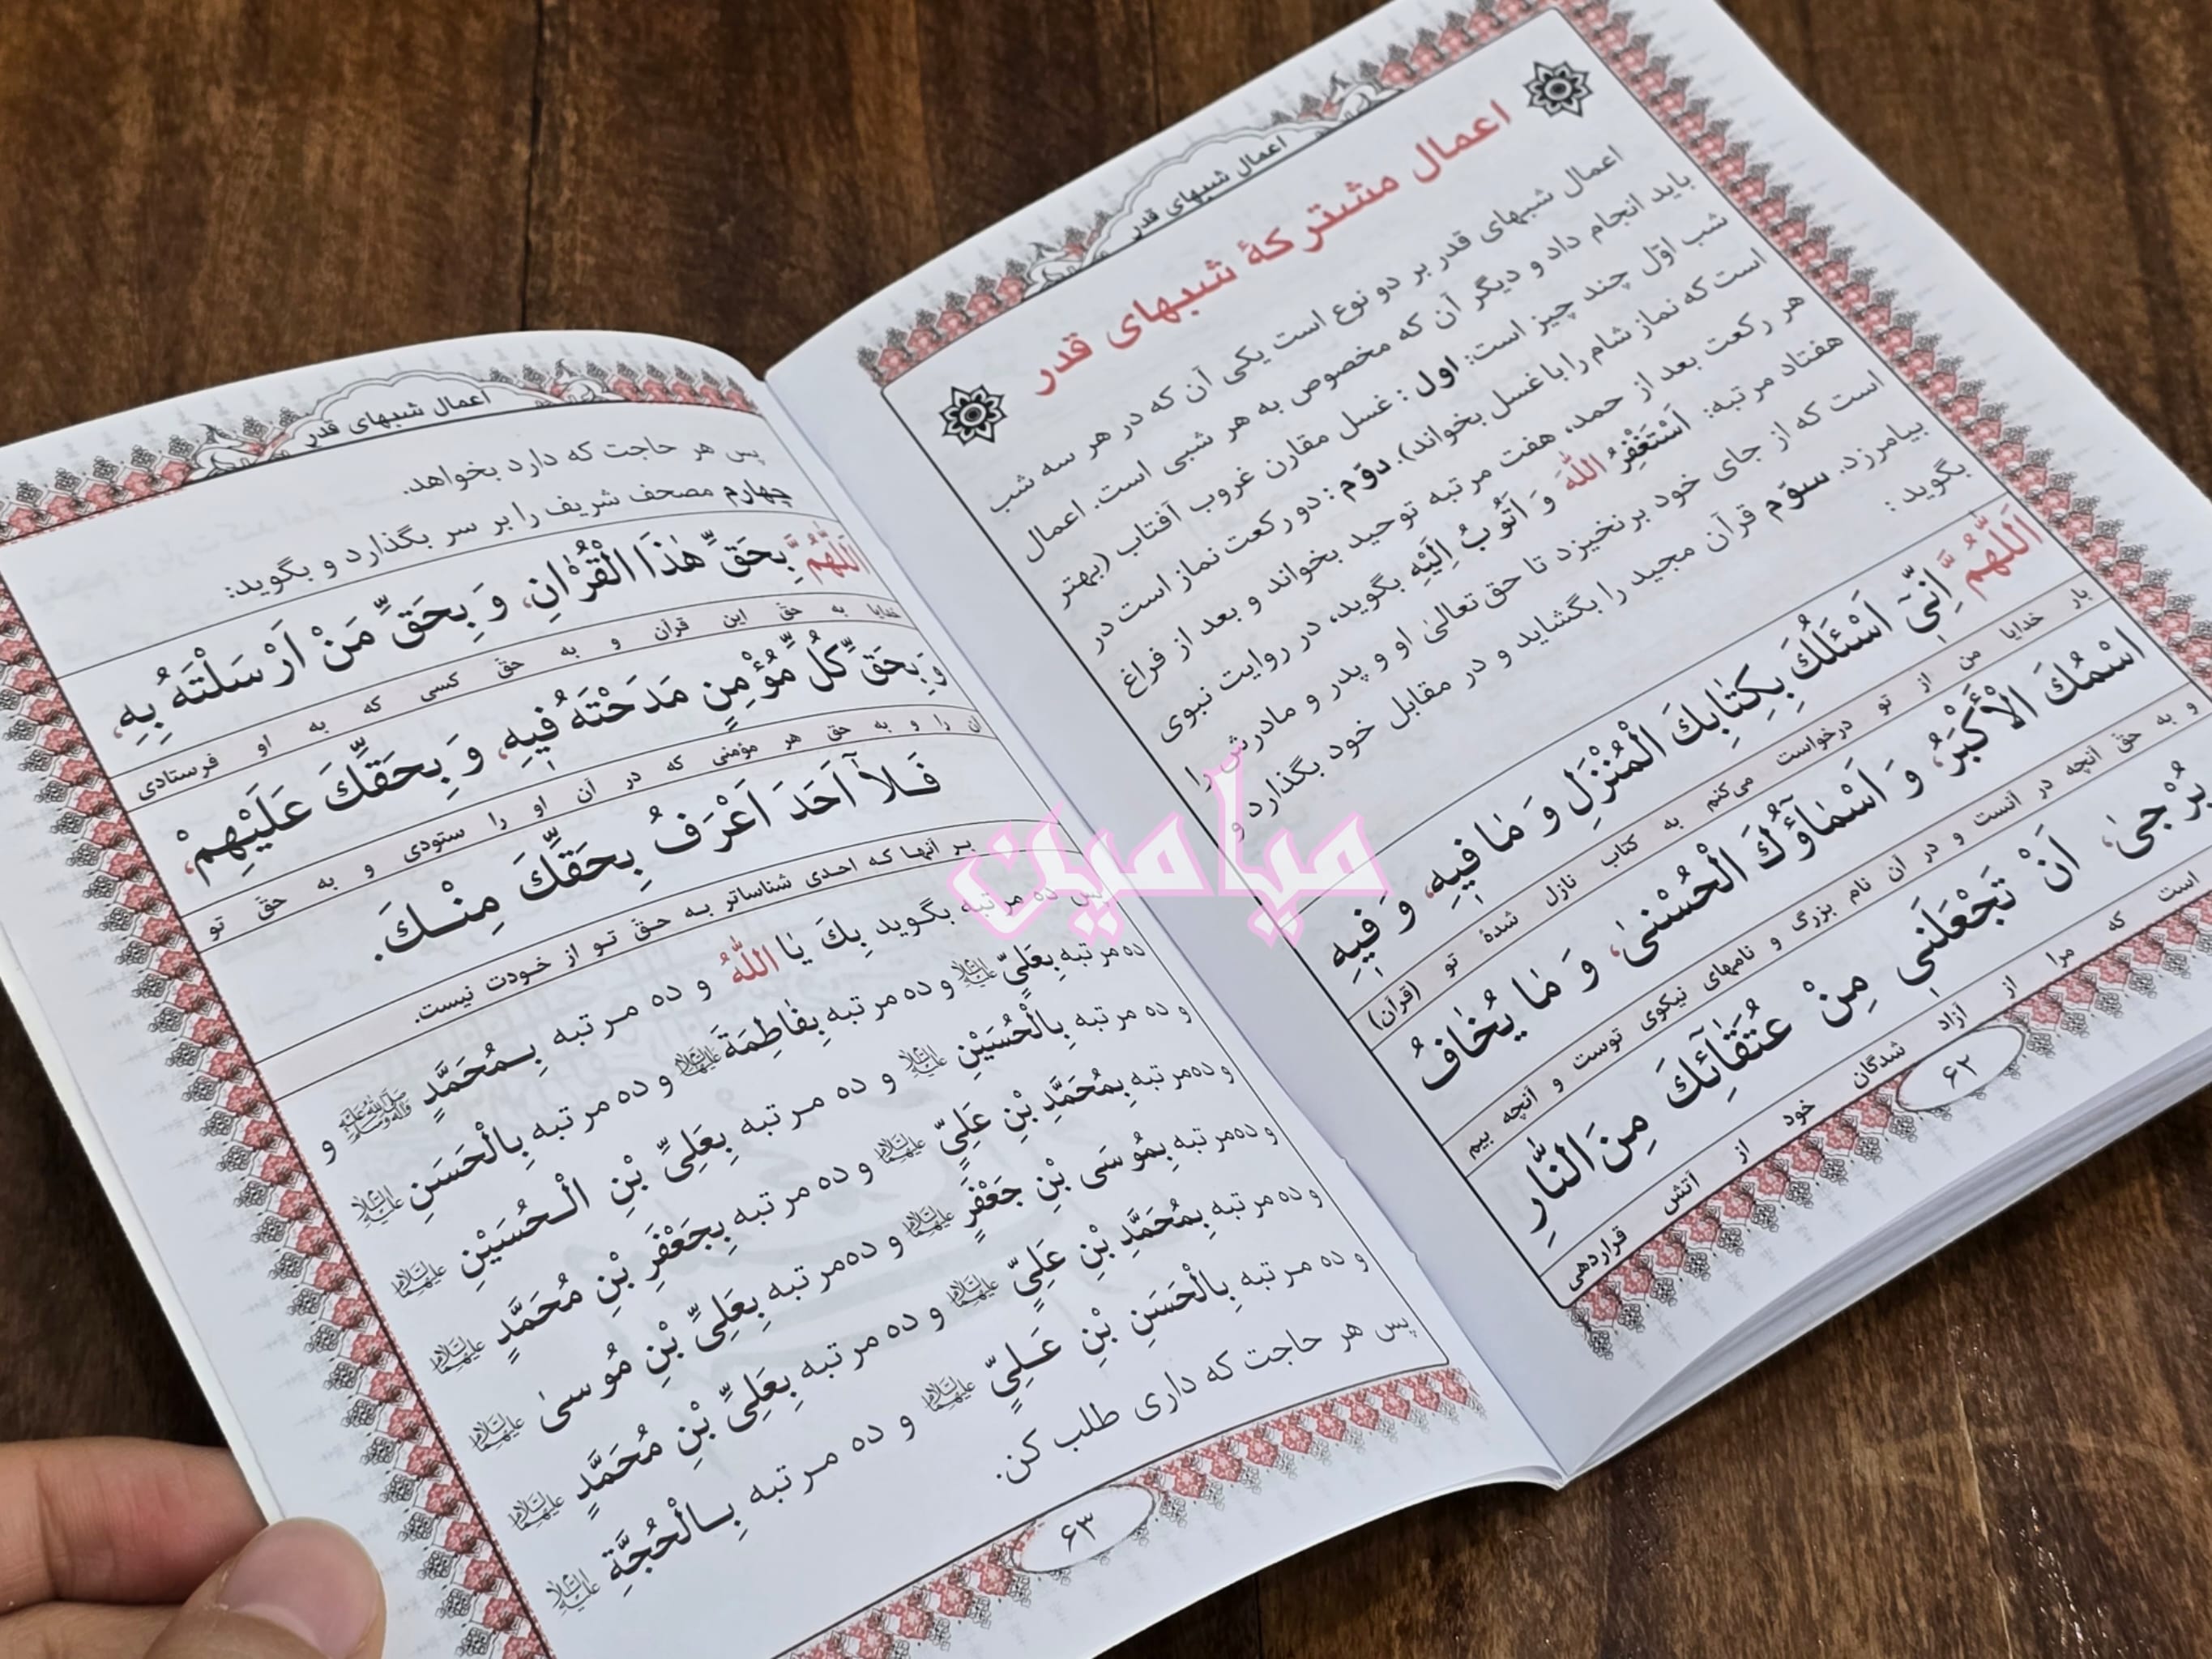 اعمال شبهای قدر
اعمال مشترکهٔ شبهای قدر
اعمال شبهای قدر بر دو نوع است یکی آن که در هر سه شب
باید انجام داد و دیگر آن که مخصوص به هر شبی است. اعمال
شب اوّل چند چیز است: اول : غسل مقارن غروب آفتاب (بهتر
است که نماز شام را با غسل بخواند). دوّم : دو رکعت نماز است در
هر رکعت بعد از حمد، هفت مرتبه توحید بخواند و بعد از فراغ
هفتاد مرتبه: اَسْتَغْفِرُ اللهَ وَ اَتُوبُ اِلَیْهِ بگوید، در روایت نبوی
است که از جای خود برنخیزد تا حق تعالیٰ او و پدر و مادرش را
بیامرزد. سوّم قرآن مجید را بگشاید و در مقابل خود بگذارد و
بگوید :
اَللّٰهُمَّ اِنّیٓ اَسْئَلُكَ بِکِتٰابِكَ الْمُنْزَلِ وَ مٰا فیهِ، وَ فیهِ
بار خدایا من از تو درخواست می‌کنم به کتاب نازل شدهٔ تو (قرآن)
اسْمُكَ الْأَكْبَرُ، وَ اَسْمٰآؤُكَ الْحُسْنیٰ، وَ مٰا یُخٰافُ
و به حق آنچه در آنست و در آن نام بزرگ و نامهای نیکوی توست و آنچه بیم
یُرْجیٰ، اَنْ تَجْعَلَنی مِنْ عُتَقٰآئِكَ مِنَ النّٰارِ
است که مرا از آزاد شدگان خود از آتش قراردهی
۶۲
اعمال شبهای قدر
پس هر حاجت که دارد بخواهد.
چهارم مصحف شریف را بر سر بگذارد و بگوید:
اَللّٰهُمَّ بِحَقِّ هٰذَا الْقُرْاٰنِ، وَ بِحَقِّ مَنْ اَرْسَلْتَهُ بِهِ،
خدایا به حق این قرآن و به حق کسی که به او فرستادی
وَ بِحَقِّ كُلِّ مُؤْمِنٍ مَدَحْتَهُ فیهِ، وَ بِحَقِّكَ عَلَیْهِمْ،
آن را و به حق هر مؤمنی که در آن او را ستودی و به حق تو
فَلاٰ اَحَدَ اَعْرَفُ بِحَقِّكَ مِنْكَ.
بر آنها که احدی شناساتر به حق تو از خودت نیست.
پس ده مرتبه بگوید بِكَ یٰا اَللّٰهُ و ده مرتبه بِمُحَمَّدٍ صلی الله علیه وآله وسلم و
ده مرتبه بِعَلِیٍّ علیه السلام و ده مرتبه بِفٰاطِمَةَ علیها السلام و ده مرتبه بِالْحَسَنِ علیه السلام
و ده مرتبه بِالْحُسَیْنِ علیه السلام و ده مرتبه بِعَلِیِّ بْنِ الْحُسَیْنِ علیهما السلام
و ده‌مرتبه بِمُحَمَّدِ بْنِ عَلِیٍّ علیهما السلام و ده مرتبه بِجَعْفَرِ بْنِ مُحَمَّدٍ علیهما السلام
و ده‌مرتبه بِمُوسَی بْنِ جَعْفَرٍ علیهما السلام و ده‌مرتبه بِعَلِیِّ بْنِ مُوسیٰ علیهما السلام
و ده مرتبه بِمُحَمَّدِ بْنِ عَلِیٍّ علیهما السلام و ده مرتبه بِعَلِیِّ بْنِ مُحَمَّدٍ علیهما السلام
و ده مرتبه بِالْحَسَنِ بْنِ عَلِیٍّ علیهما السلام و ده مرتبه بِالْحُجَّةِ علیه السلام
پس هر حاجت که داری طلب کن.
۶۳
میامین